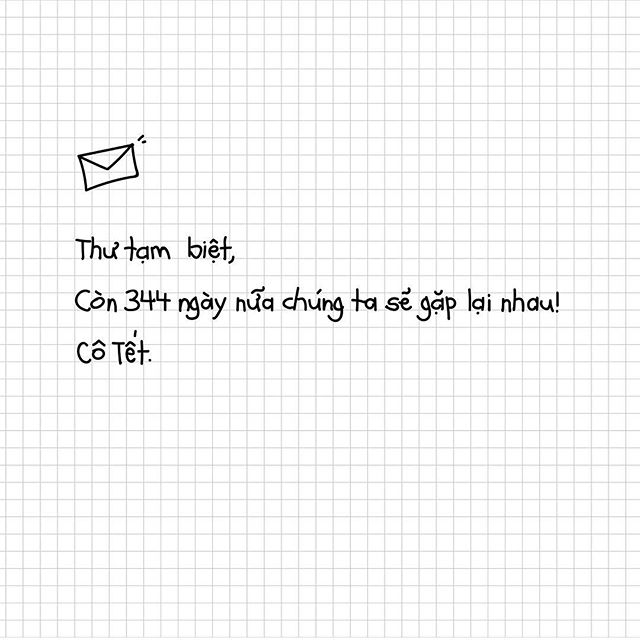 Thư tạm biệt,
Còn 344 ngày nữa chúng ta sẽ gặp lại nhau!
Cô Tết.